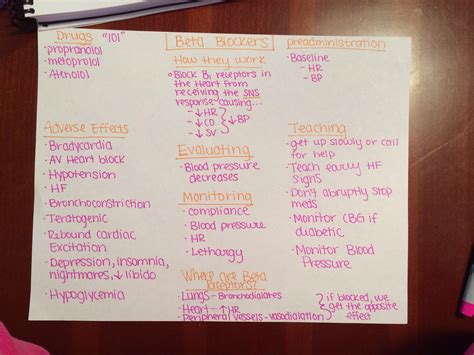 Drugs "101"
• propranolol
• metoprolol
• Atenolol
Beta Blockers
How they work
• Block B₁ receptors in
the Heart from
receiving the SNS
response causing...
- ↓HR
- ↓CO } ↓BP
- ↓SV
preadministration
• Baseline
- HR
- BP
Adverse Effects
• Bradycardia
• AV Heart block
• Hypotension
• HF
• Bronchoconstriction
• Teratogenic
• Rebound Cardiac
Excitation
• Depression, insomnia,
nightmares, ↓ libido
• Hypoglycemia
Evaluating
• Blood pressure
decreases
Monitoring
• compliance
• Blood pressure
• HR
• Lethargy
Teaching
• get up slowly or call
for help
• Teach early HF
signs
• Don't abruptly stop
meds
• Monitor CBG if
diabetic
• Monitor Blood
Pressure
Where are Beta
Receptors?
• Lungs - Bronchodialates
• Heart - ↑HR
• Peripheral vessels - vasodialation
} if blocked, we
get the opposite
effect